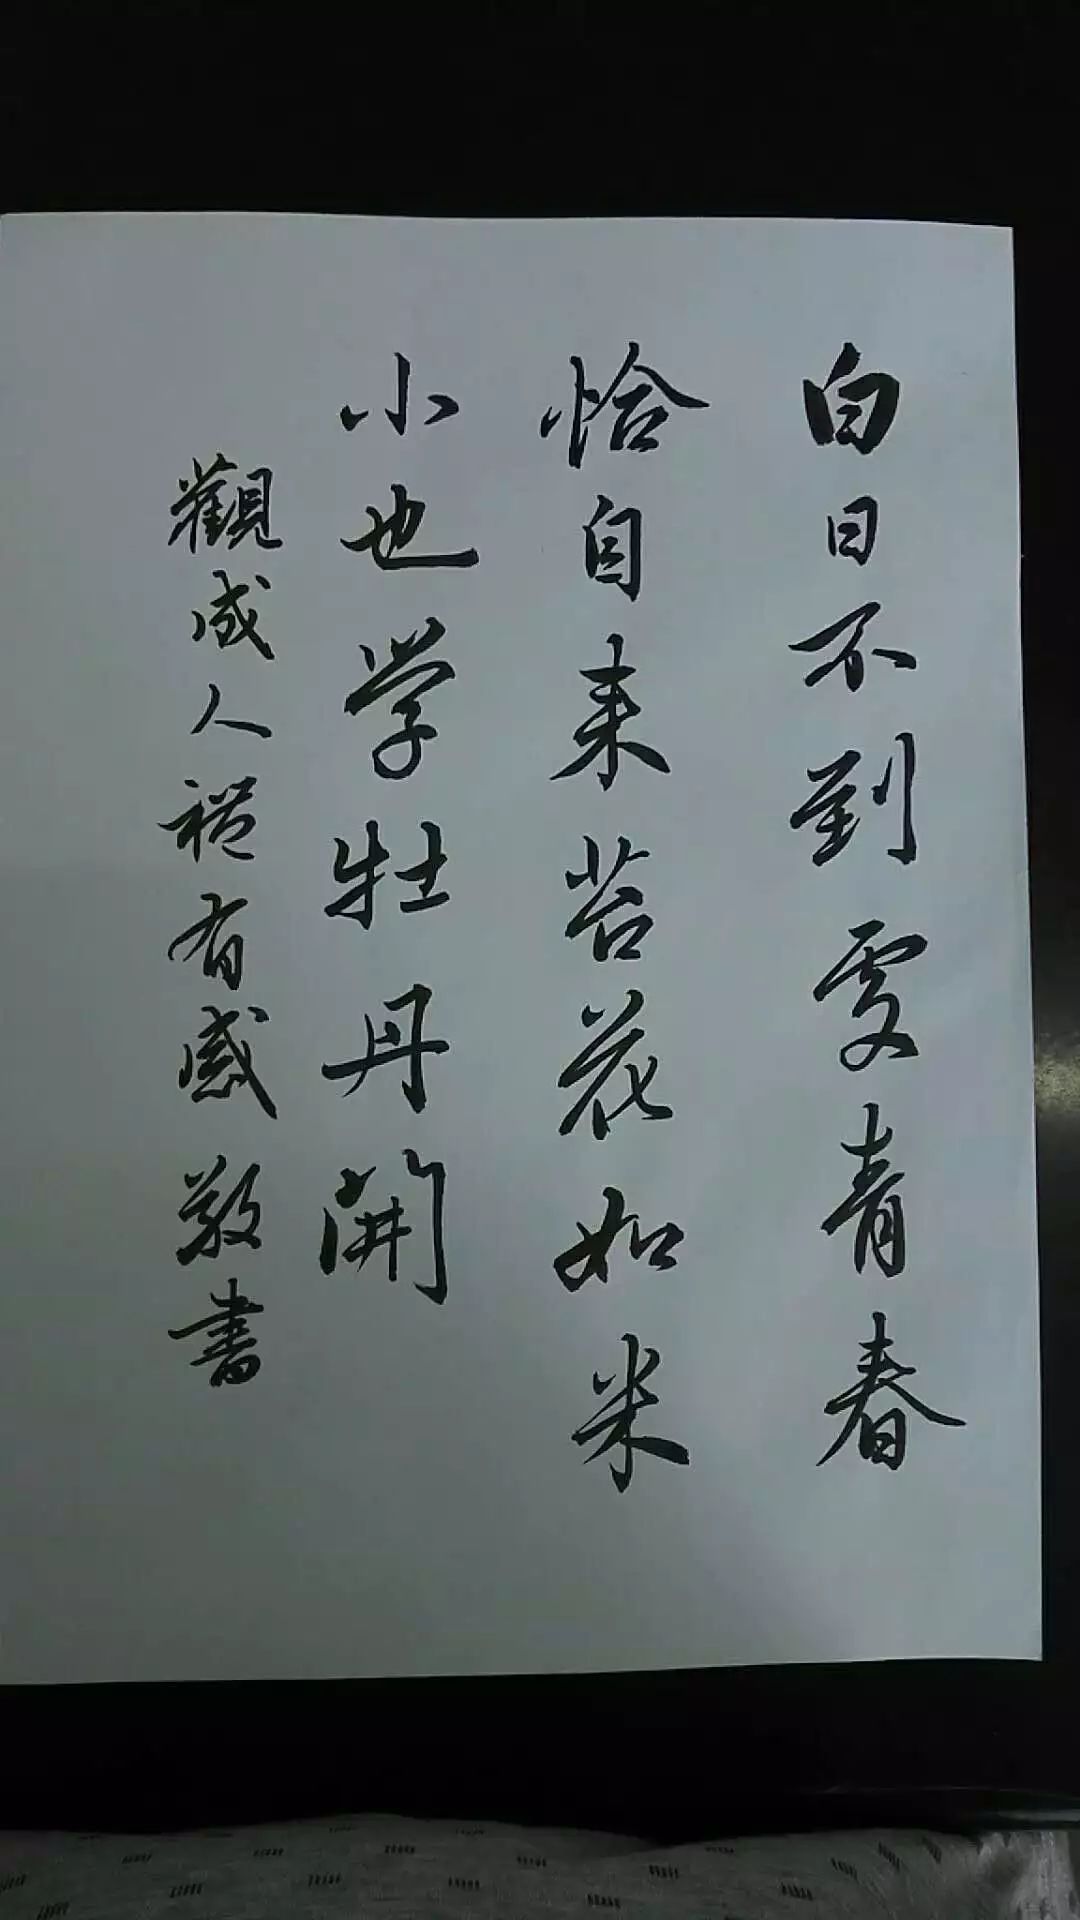 白日不到處青春
恰自来苔花如米
小也学牡丹開
觀成人禮有感敬書